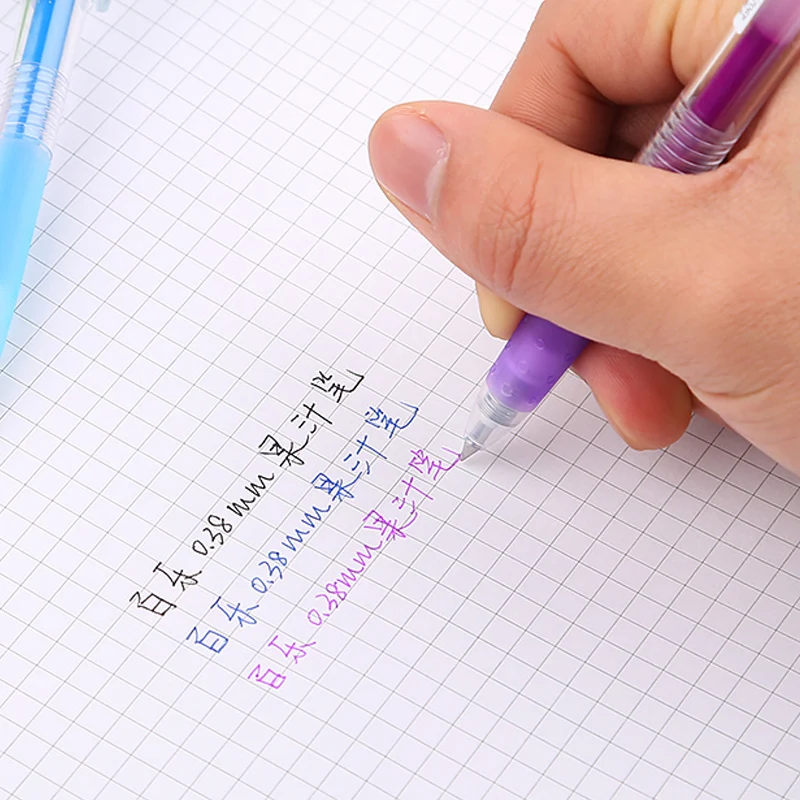 百乐 0.38mm 果汁笔
百乐 0.38mm 果汁笔
百乐 0.38mm 果汁笔